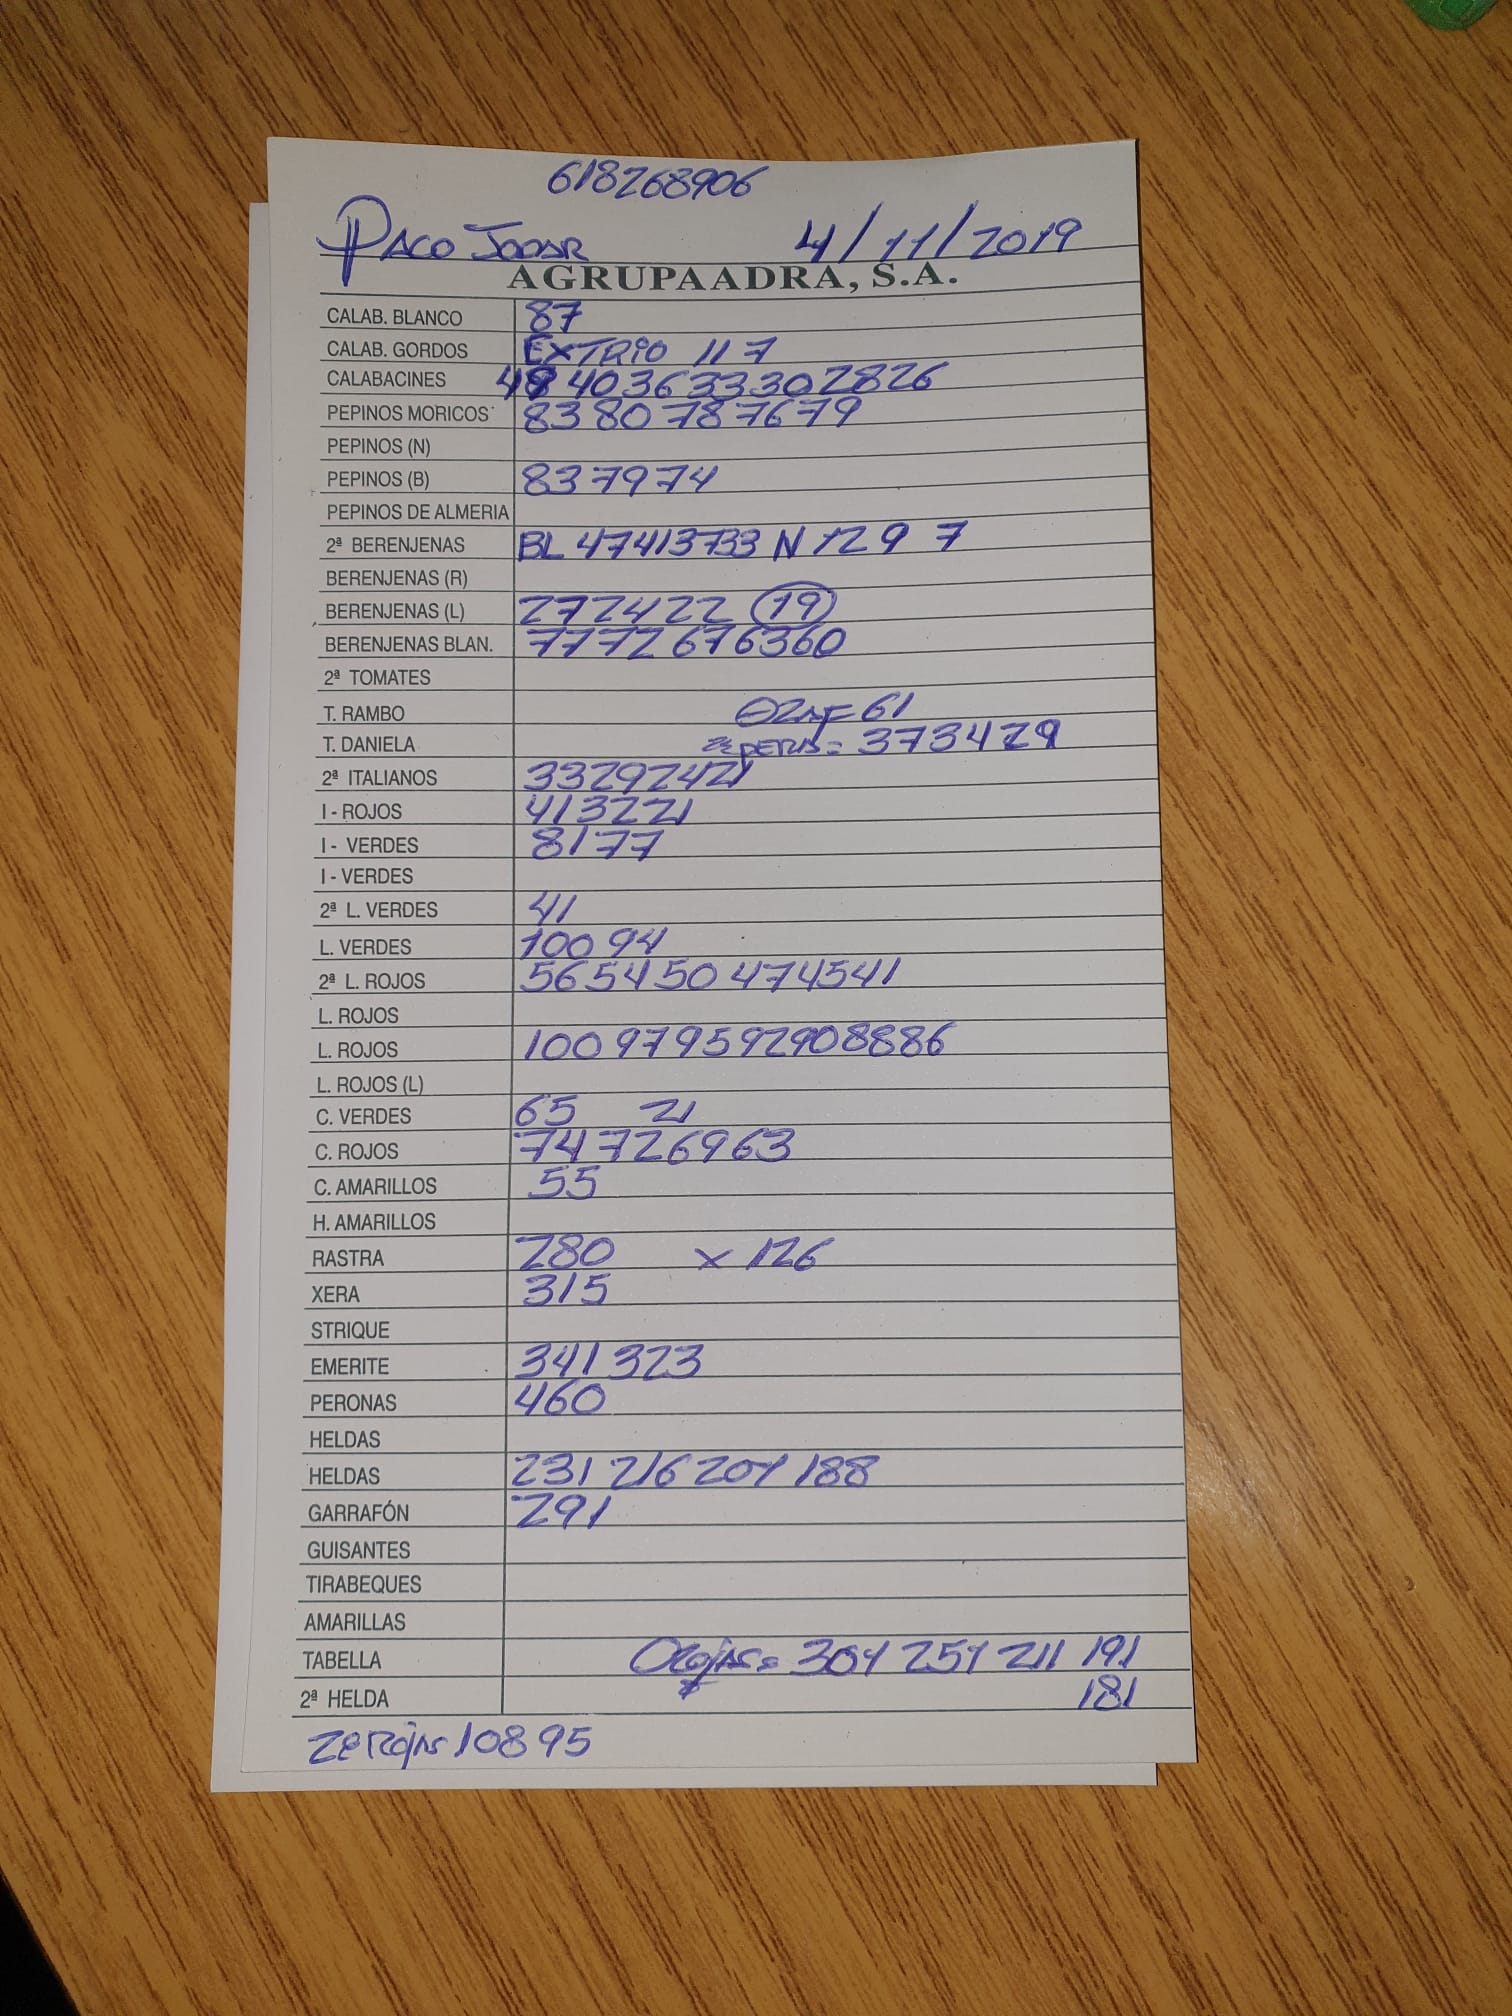 618268906
PACO JODAR 4/11/2019
AGRUPAADRA, S.A.
CALAB. BLANCO 87
CALAB. GORDOS EXTRIO 117
CALABACINES 48 40 36 33 30 28 26
PEPINOS MORICOS 83 80 78 76 79
PEPINOS (N)
PEPINOS (B) 83 79 74
PEPINOS DE ALMERIA
2ª BERENJENAS BL 47 41 37 33 N 12 9 7
BERENJENAS (R)
BERENJENAS (L) 27 24 22 19
BERENJENAS BLAN. 77 72 67 63 60
2ª TOMATES
T. RAMBO = 61
T. DANELA = 37 34 29
2ª ITALIANOS 33 29 24 21
I - ROJOS 41 32 21
I - VERDES 81 77
I - VERDES
2ª L. VERDES 41
L. VERDES 100 94
2ª L. ROJOS 56 54 50 47 45 41
L. ROJOS
L. ROJOS 100 97 95 92 90 88 86
L. ROJOS (L)
C. VERDES 65 21
C. ROJOS 74 72 69 63
C. AMARILLOS 55
H. AMARILLOS
RASTRA 280 x 126
XERA 315
STRIQUE
EMERITE 341 323
PERONAS 460
HELDAS
HELDAS 231 216 201 188
GARRAFÓN 291
GUISANTES
TIRABEQUES
AMARILLAS
TABELLA ROJAS = 301 251 211 191
2ª HELDA 181
2ª ROJAS 108 95